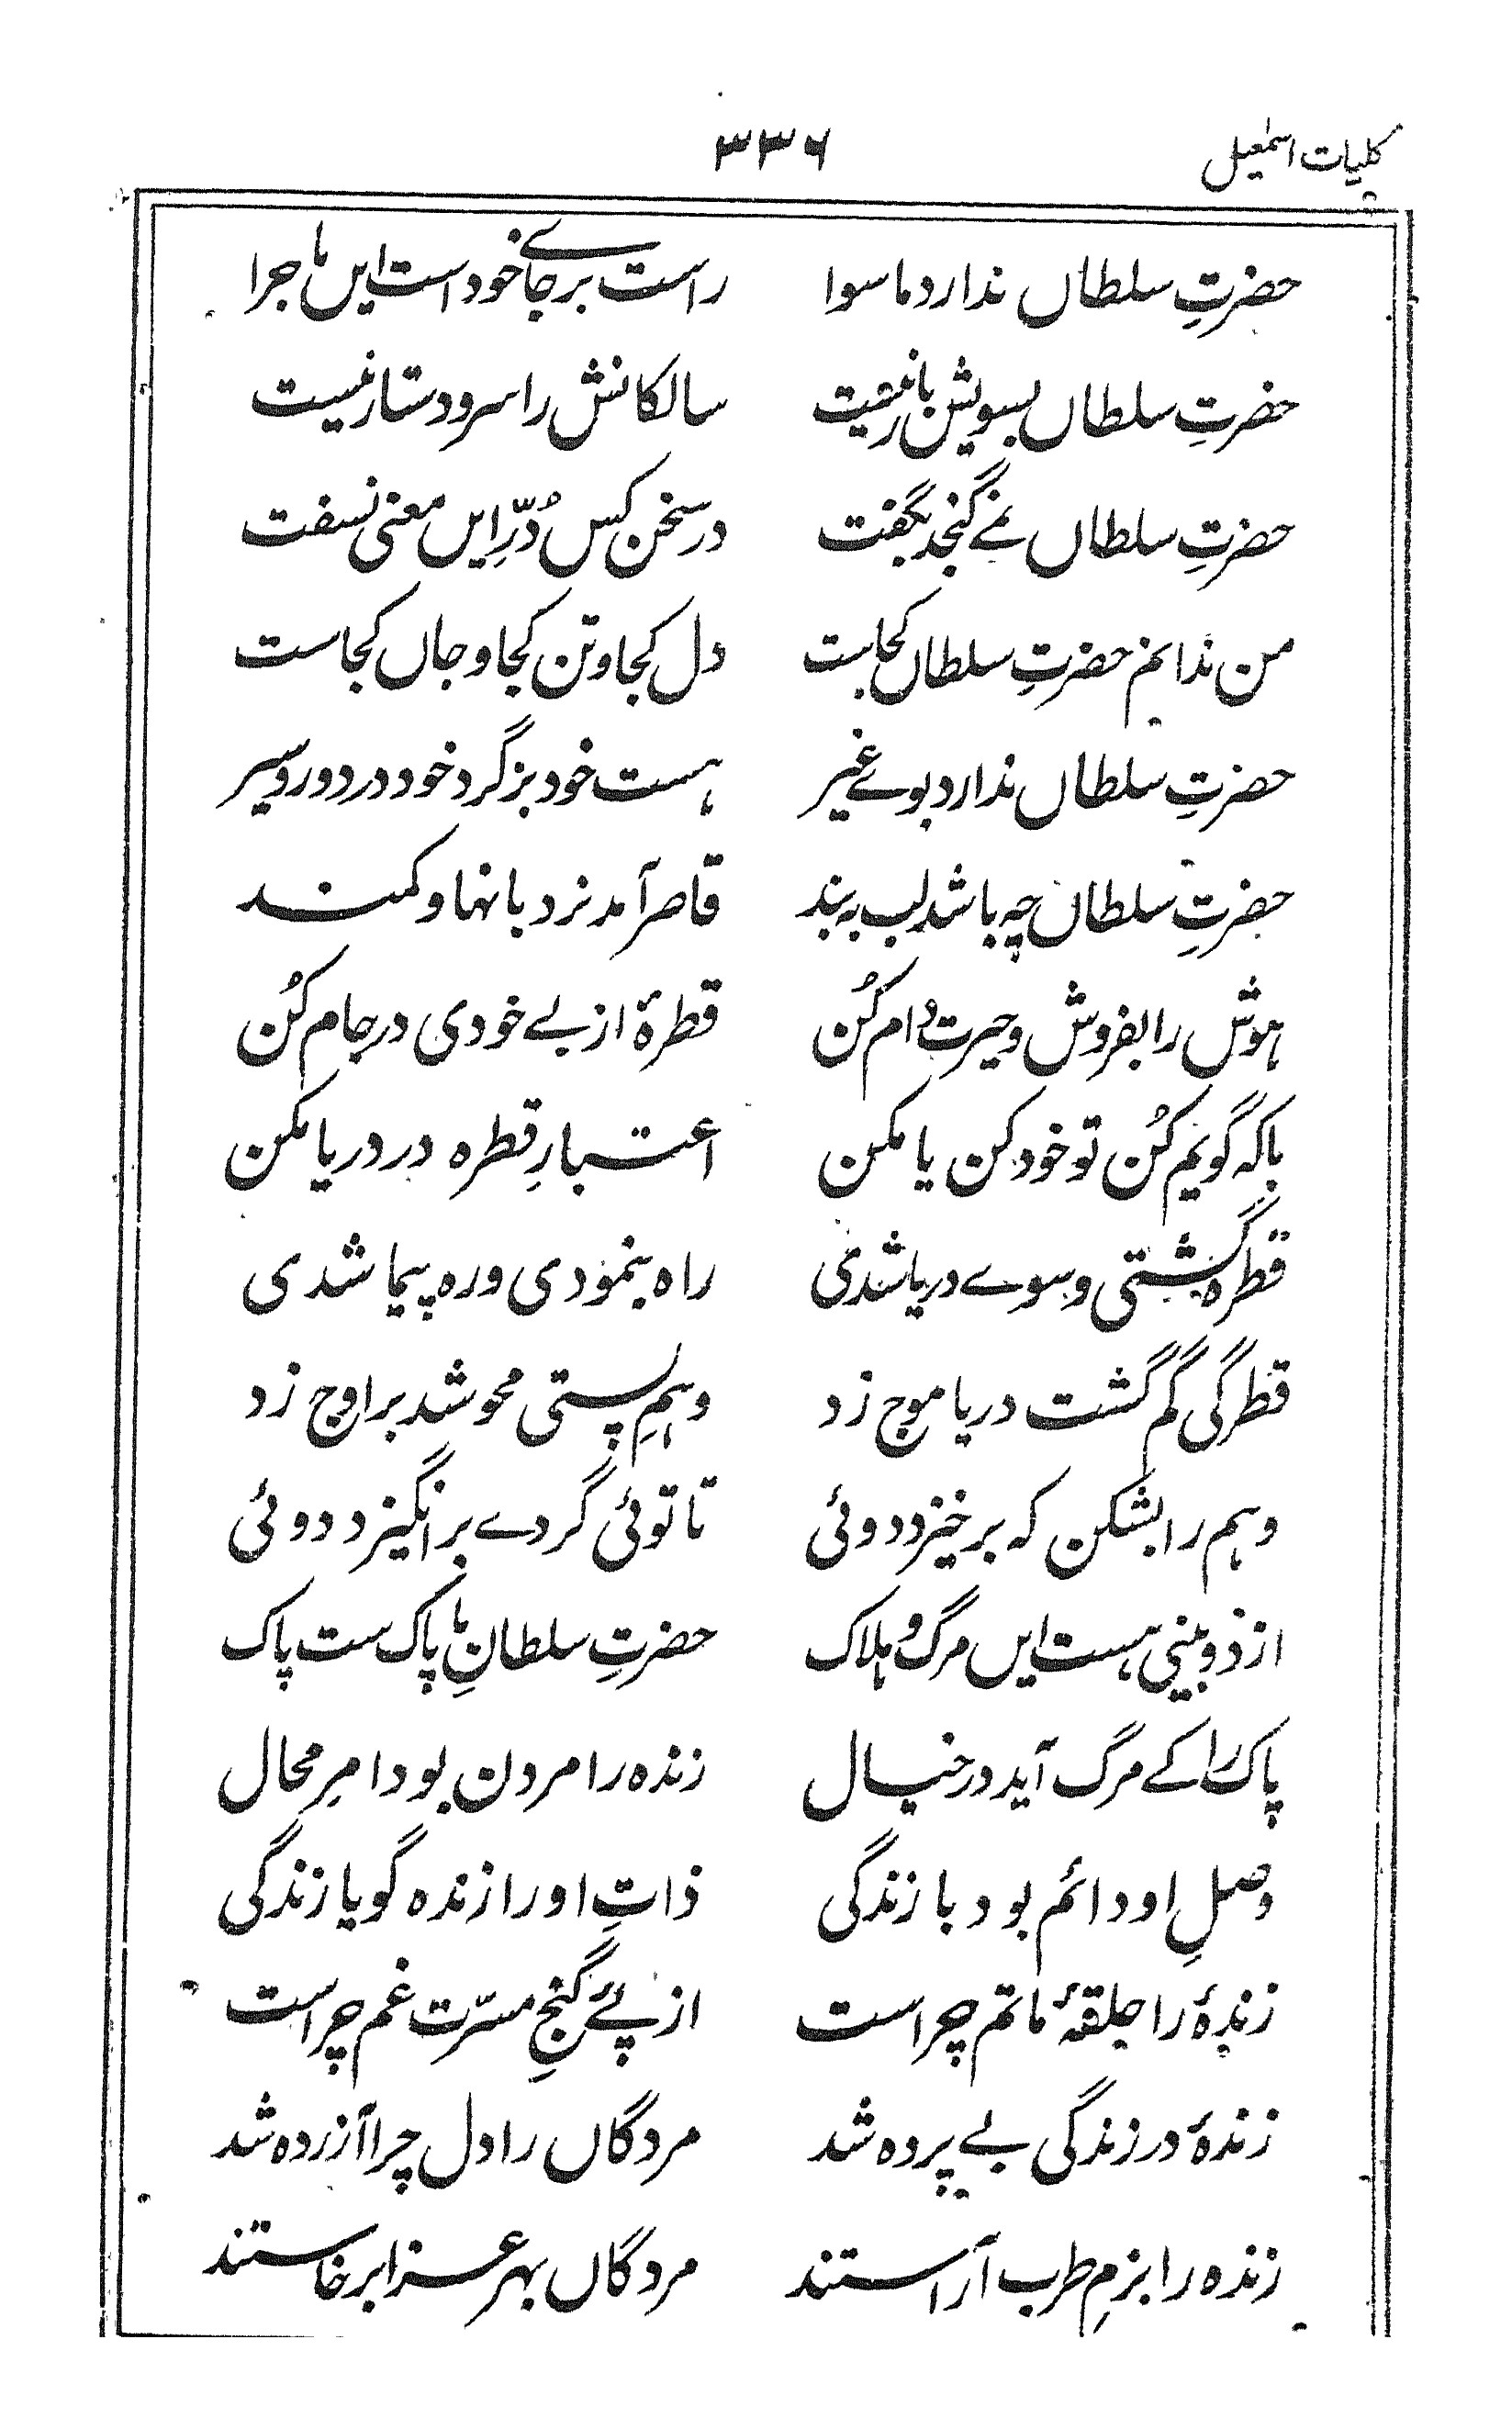 کلیات اسمٰعیل ۳۳۶
حضرتِ سلطاں ندارد ماسوا راست بر جائے خود است ایں ماجرا
حضرتِ سلطاں بسویش بار نیست سالکانش را سر و دستار نیست
حضرتِ سلطاں نمے گنجد بگفت در سخن کس دُرِّ ایں معنی نسفت
من ندانم حضرتِ سلطاں کجاست دل کجا و تن کجا و جاں کجاست
حضرتِ سلطاں ندارد بوئے غیر ہست خود بر گرد خود در دور و سیر
حضرتِ سلطاں چہ باشد لب بہ بند قاصر آمد نردبانہا و کمند
ہوش را بفروش و حیرت وام کُن قطرۂ از بے خودی در جام کُن
با کہ گویم کُن تو خود کن یا مکن اعتبارِ قطرہ در دریا مکن
قطرہ گشتی و سوے دریا شدی راہ بنمودی و رہ پیما شدی
قطرگی گم گشت دریا موج زد وہمِ پستی محو شد بر اوج زد
وہم را بشکن کہ برخیزد دوئی تا توئی گردے برانگیزد دوئی
از دوبینی ہست ایں مرگ و ہلاک حضرتِ سلطانِ ما پاک ست پاک
پاک را کے مرگ آید در خیال زندہ را مردن بود امرِ محال
وصلِ او دائم بود با زندگی ذاتِ او را زندہ گو یا زندگی
زندۂ را حلقۂ ماتم چراست از پئے گنجِ مسرّت غم چراست
زندۂ در زندگی بے پردہ شد مردگاں را دل چرا آزردہ شد
زندہ را بزمِ طرب آراستند مردگاں بہر عزا برخاستند